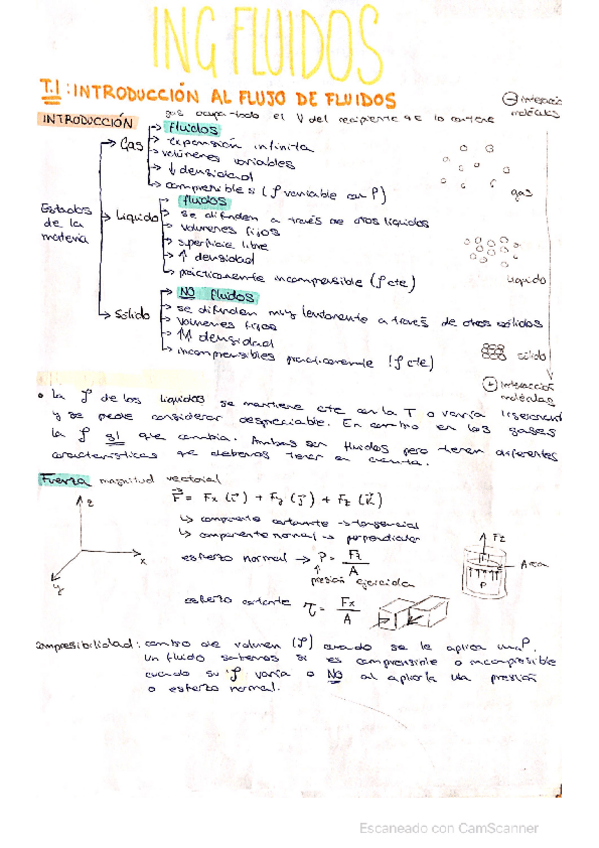 ING FLUIDOS
T.1: INTRODUCCIÓN AL FLUJO DE FLUIDOS
⊖ interacció
moléculas
que ocupa todo el V del recipiente qe lo contiene
INTRODUCCIÓN
Estados de la materia
Gas
→ fluidos
→ expansión infinita
→ volúmenes variables
→ ↓ densidad
→ compresibles (ρ variable con P)
gas
Líquido
→ fluidos
→ se difunden a través de otros líquidos
→ volumenes fijos
→ superficie libre
→ ↑ densidad
→ prácticamente incompresible (ρ cte)
líquido
Sólido
→ NO fluidos
→ se difunden muy lentamente a través de otros sólidos
→ volumenes fijos
→ ↑↑ densidad
→ incompresibles practicamente (ρ cte)
sólido
⊕ Interacción
moléculas
• La ρ de los líquidos se mantiene cte con la T o varía
y se puede considerar despreciable. En cambio en los gases
la ρ sí que cambia. Ambas son fluidos pero tienen diferentes
características qe debemos tener en cuenta.
Fuerza magnitud vectorial
F = Fx (i) + Fy (j) + Fz (k)
↳ componente cortante → tangencial
↳ componente normal → perpendicular
esfuerzo normal → P = Fz / A
presión ejercida
esfuerzo cortante τ = Fx / A
z
x
y
Fz
Area
P
Compresibilidad: cambio de volumen (ρ) cuando se le aplica una P.
Un fluido sabemos si es compresible o incompresible
cuando su ρ varía o NO al aplicarla una presión
o esfuerzo normal.
Escaneado con CamScanner